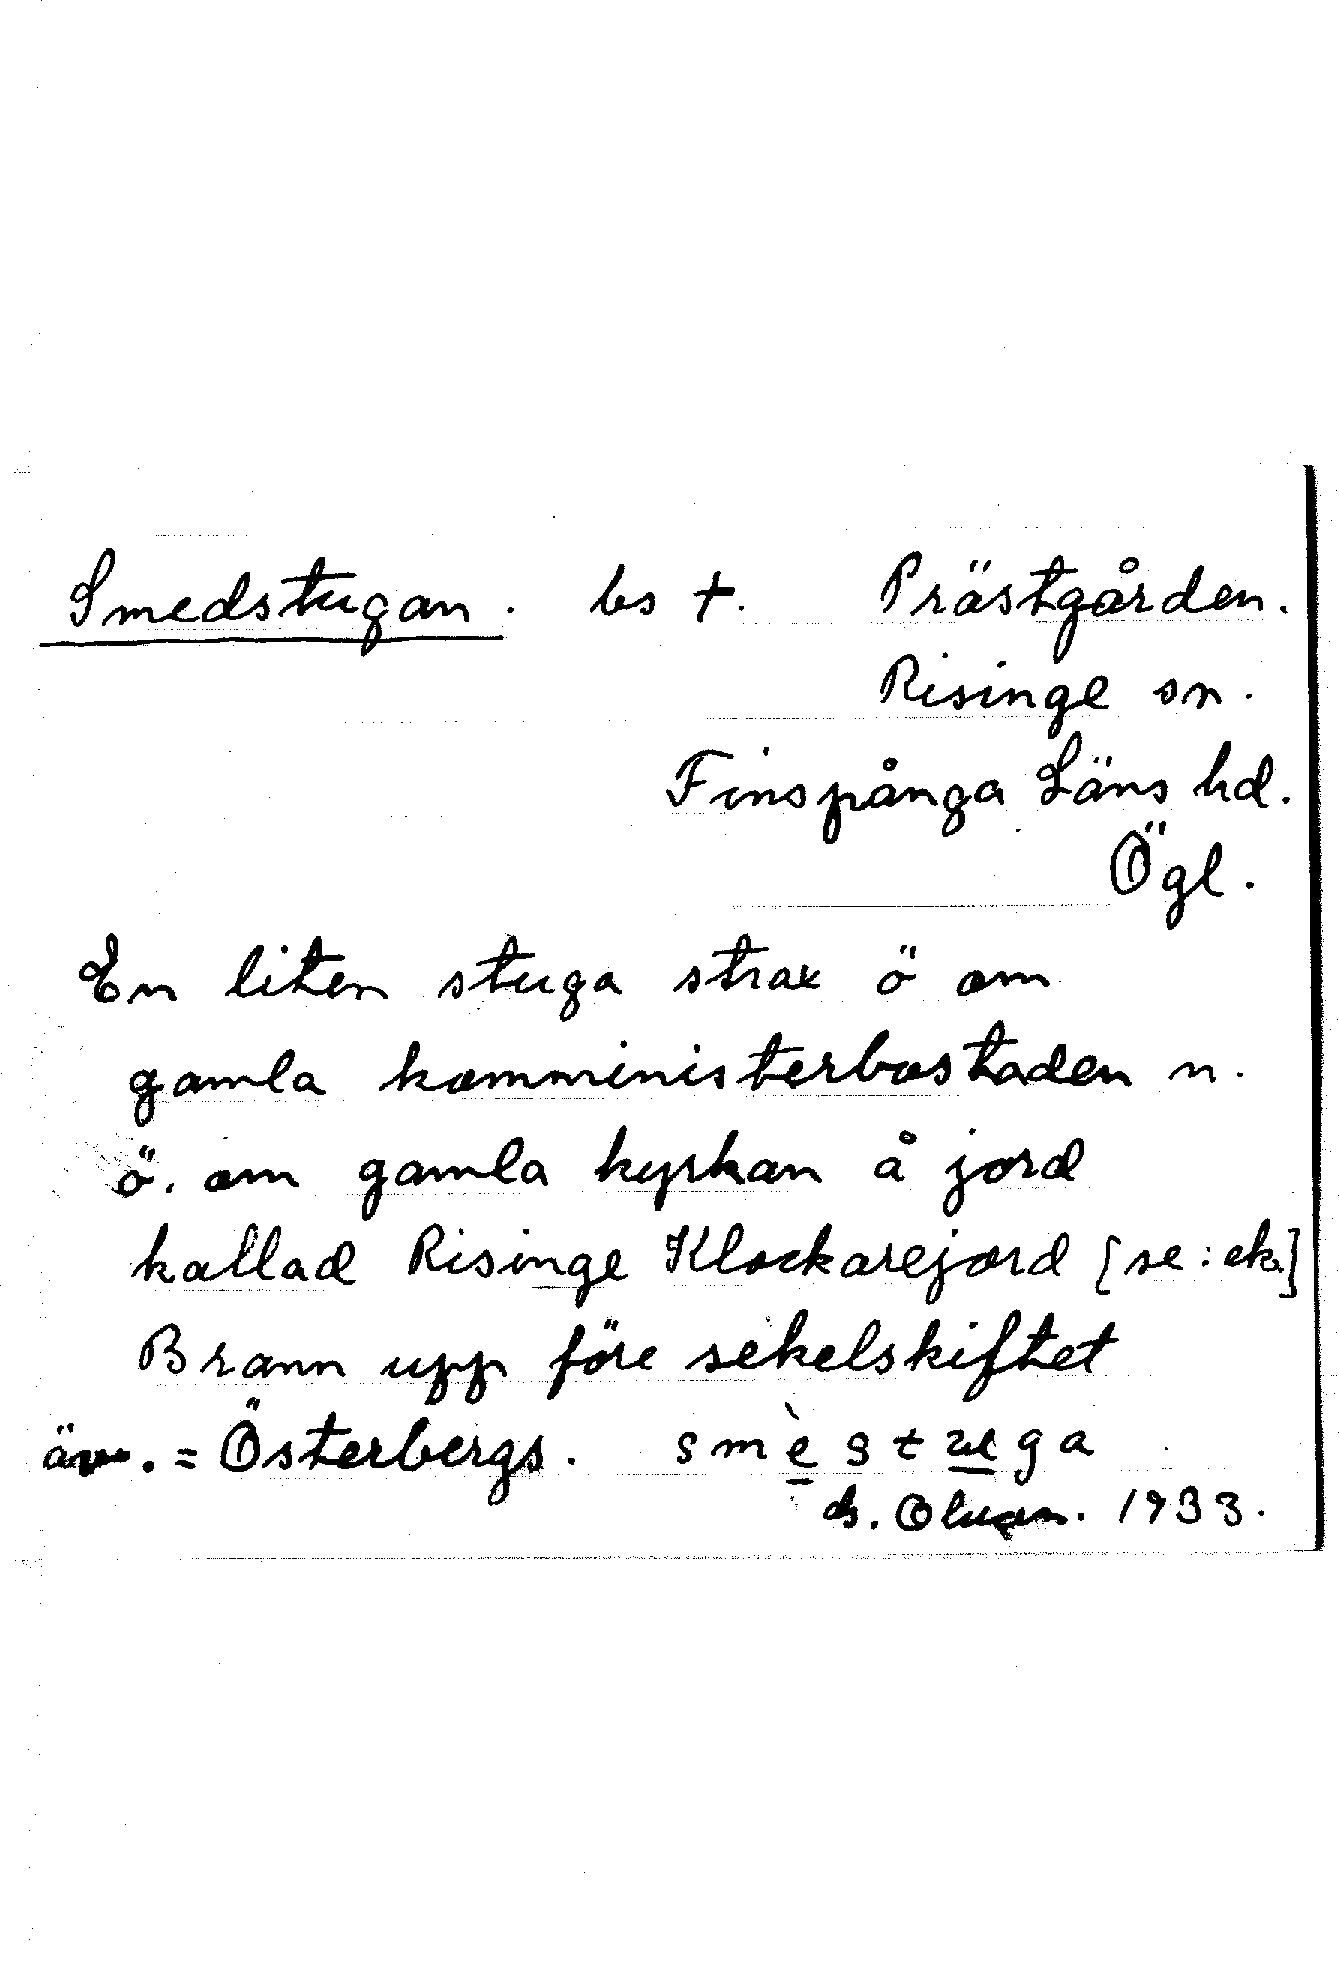 Smedstugan. bs †. Prästgården.
Risinge sn.
Finspånga Läns hd.
Ögl.
En liten stuga strax ö om
gamla komministerbostaden n.
ö. om gamla kyrkan å jord
kallad Risinge Klockarejord [se: ek.]
Brann upp före sekelskiftet
äv. = Österbergs. smè̱stu̲ga
1933.